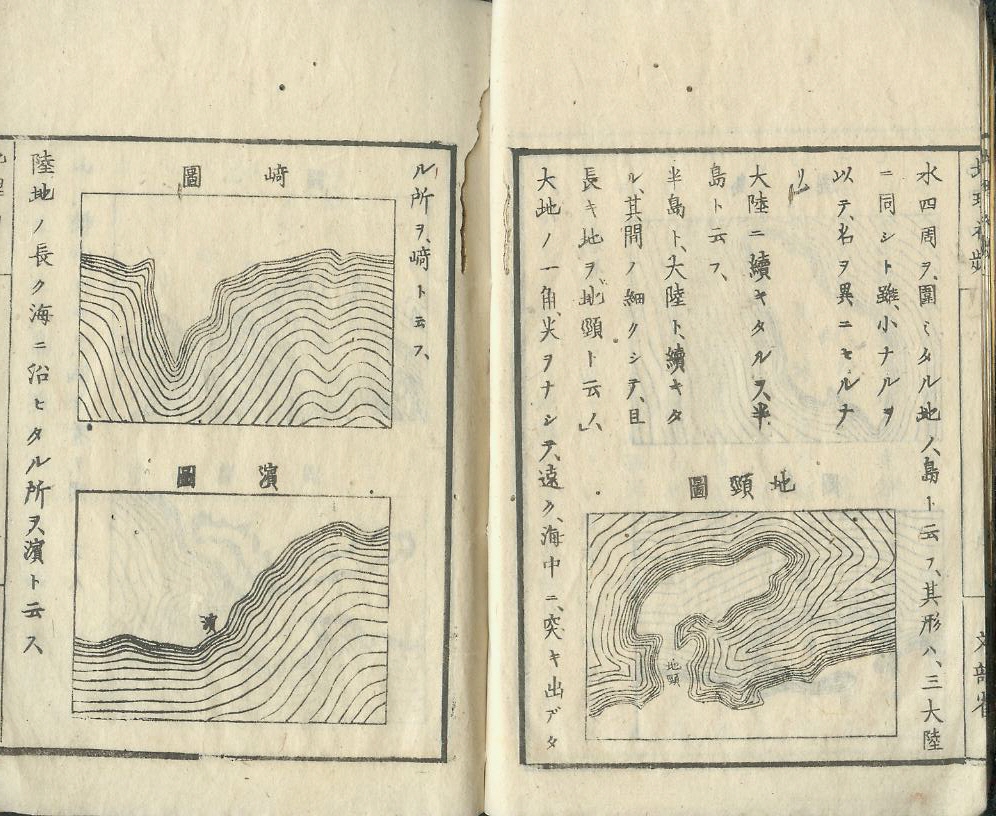 水四周ヲ、圍ミタル地ノ、島ト云フ、其形ハ、三大陸
ニ同シト雖、小ナルヲ
以テ、名ヲ異ニセルナ
リ
大陸ニ續キタルヲ、半
島ト云フ、
半島ト、大陸ト、續キタ
ル、其間ノ細クシテ、且
長キ地ヲ、地頸ト云フ、
地頸圖
地頸
大地ノ一角、尖ヲナシテ、遠ク、海中ニ、突キ出デタ
文部省
ル所ヲ、﨑ト云フ、
﨑圖
濱圖
濱
陸地ノ長ク海ニ沿ヒタル所ヲ、濱ト云フ